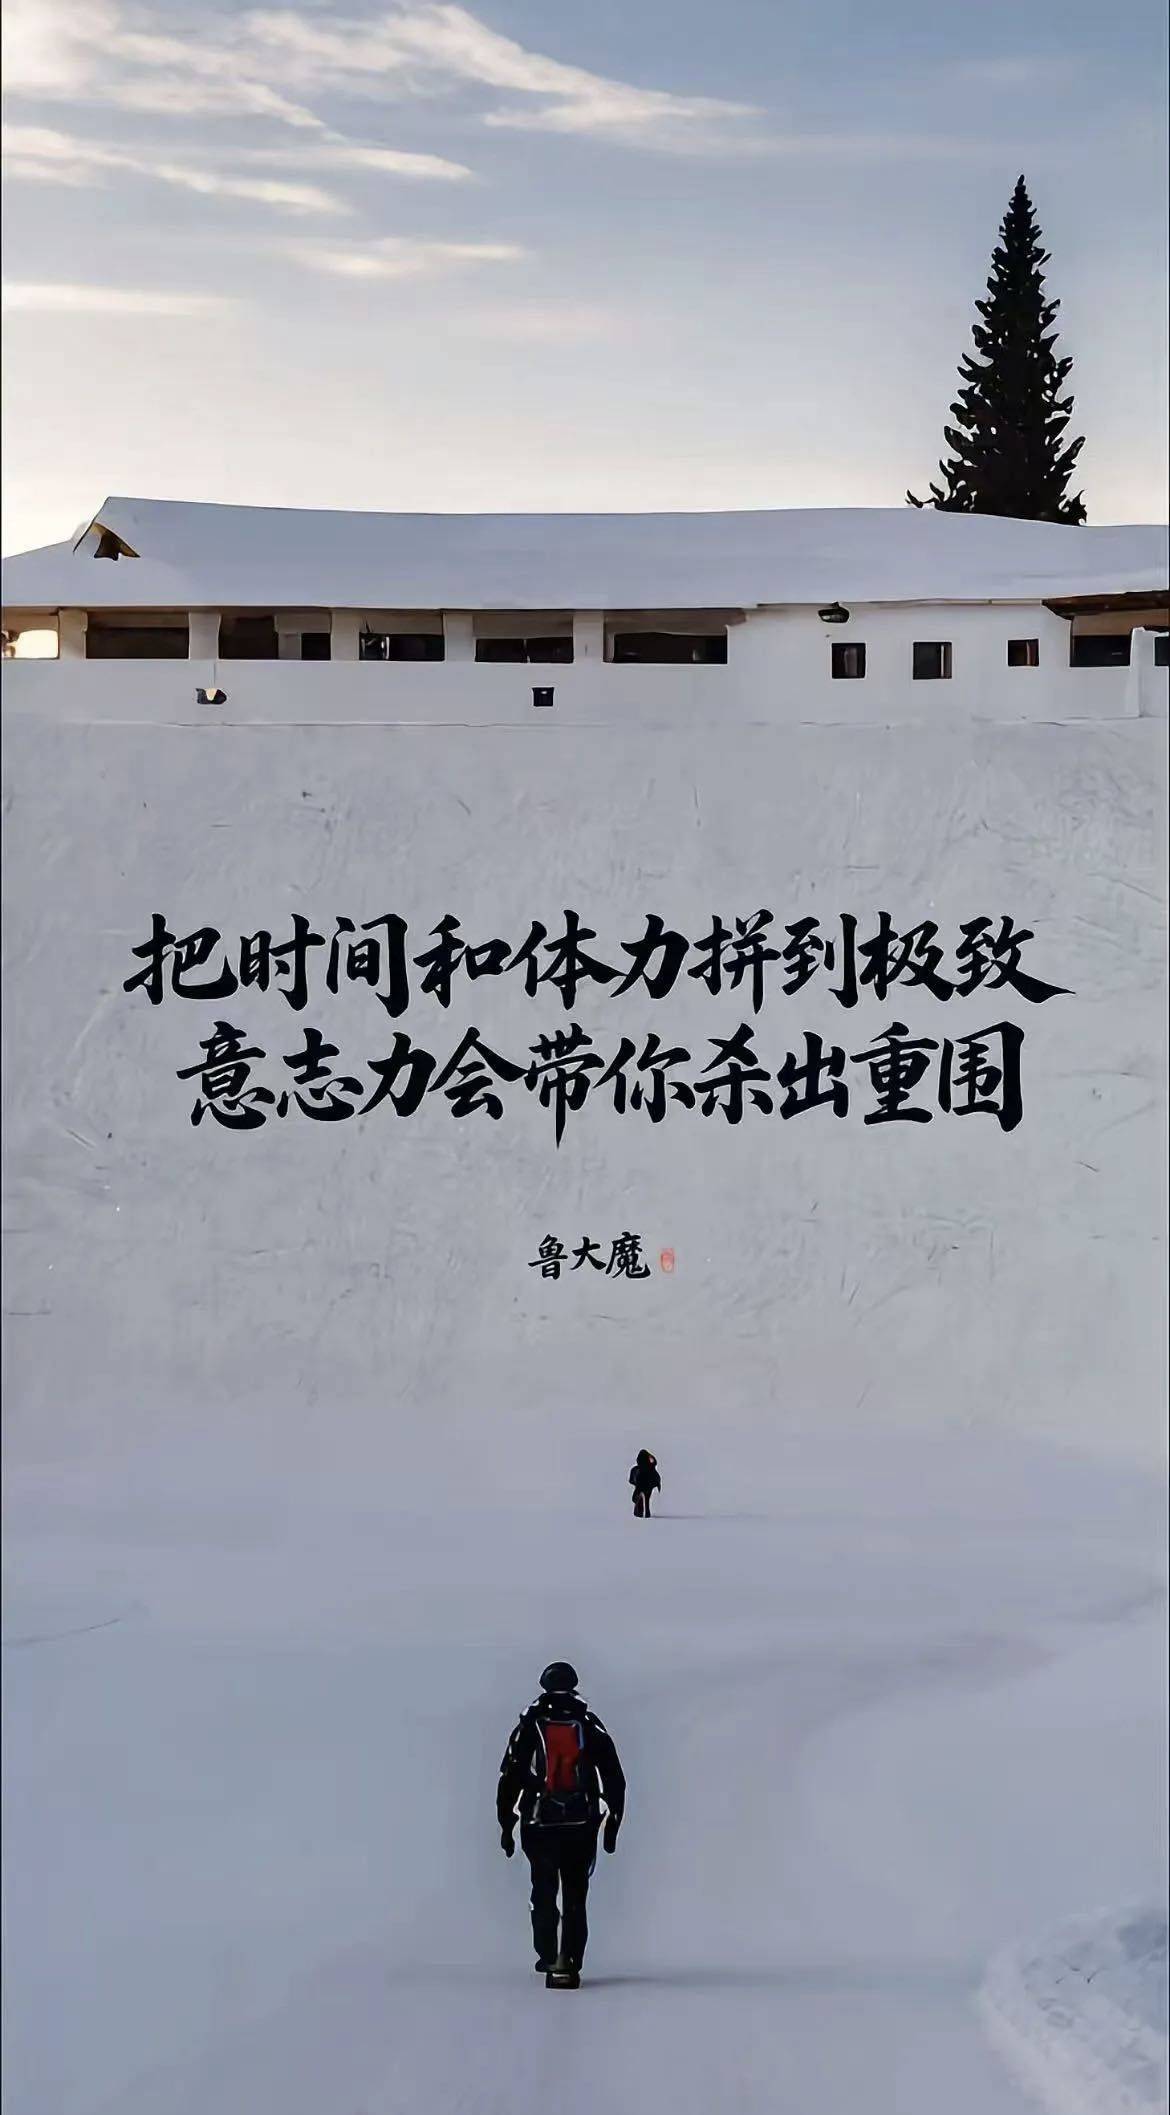 把时间和体力拼到极致
意志力会带你杀出重围
鲁大魔